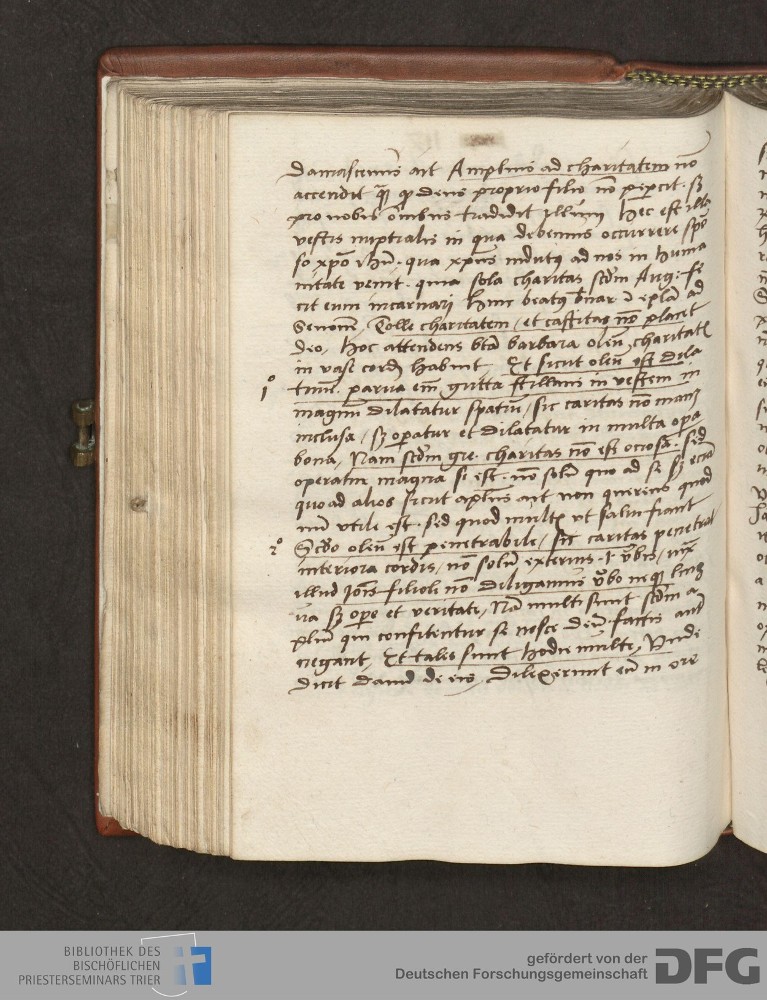 Damascenus ait Amplius ad charitatem nō
accendit quā qđ deus proprio filio nō pepercit. sꝫ
pro nobis oībus tradidit illum Hec est illa
vestis nuptialis in qua debemus occurrere spō
so xp̄o ihū. qua xp̄us indutꝯ ad nos in huma
nitate venit. quia sola charitas scdm Aug: fe
cit eum incarnari Hinc beatꝯ bnar ī ep̄la ad
Senonē, Tolle charitatem, et castitas nō placet
deo, Hoc attendens btā barbara oleū charitatꝭ
in vase cordꝭ habuit, Et sicut oleū est dila
1º tiuū. parua em̄ gutta stillans in vestem in
magnū dilatatur spatiū, sic caritas nō manꝫ
inclusa, sꝫ opatur et dilatatur in multa opa
bona, Nam scdm gre. charitas nō est ociosa. sed
operatur magna si est. nō solū quo ad se sꝫ eciā
quo ad alios sicut aplus ait non querens quod
mi vtile est. sed quod multꝭ vt salui fiant
2º Scdo oleū est penetrabile, sic caritas penetrat
interiora cordis, nō solū exterius. ī vbis, iux
illud Jois filioli nō diligamus vbo neqꝫ ling
ua sꝫ ope et veritate, Nā multi sunt scdm a
plum qui confitentur se nosce deū. factis aut̄
negant, Et tales sunt hodie multi, Vnde
dicit dauid de eis, Dilexerunt eū in ore
BIBLIOTHEK DES
BISCHÖFLICHEN
PRIESTERSEMINARS TRIER
gefördert von der
Deutschen Forschungsgemeinschaft
DFG